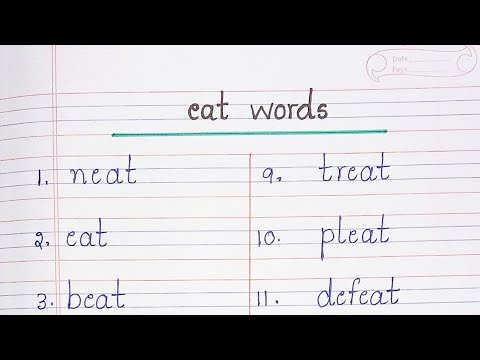 Date
Page
eat words
1. neat
2. eat
3. beat
9. treat
10. pleat
11. defeat